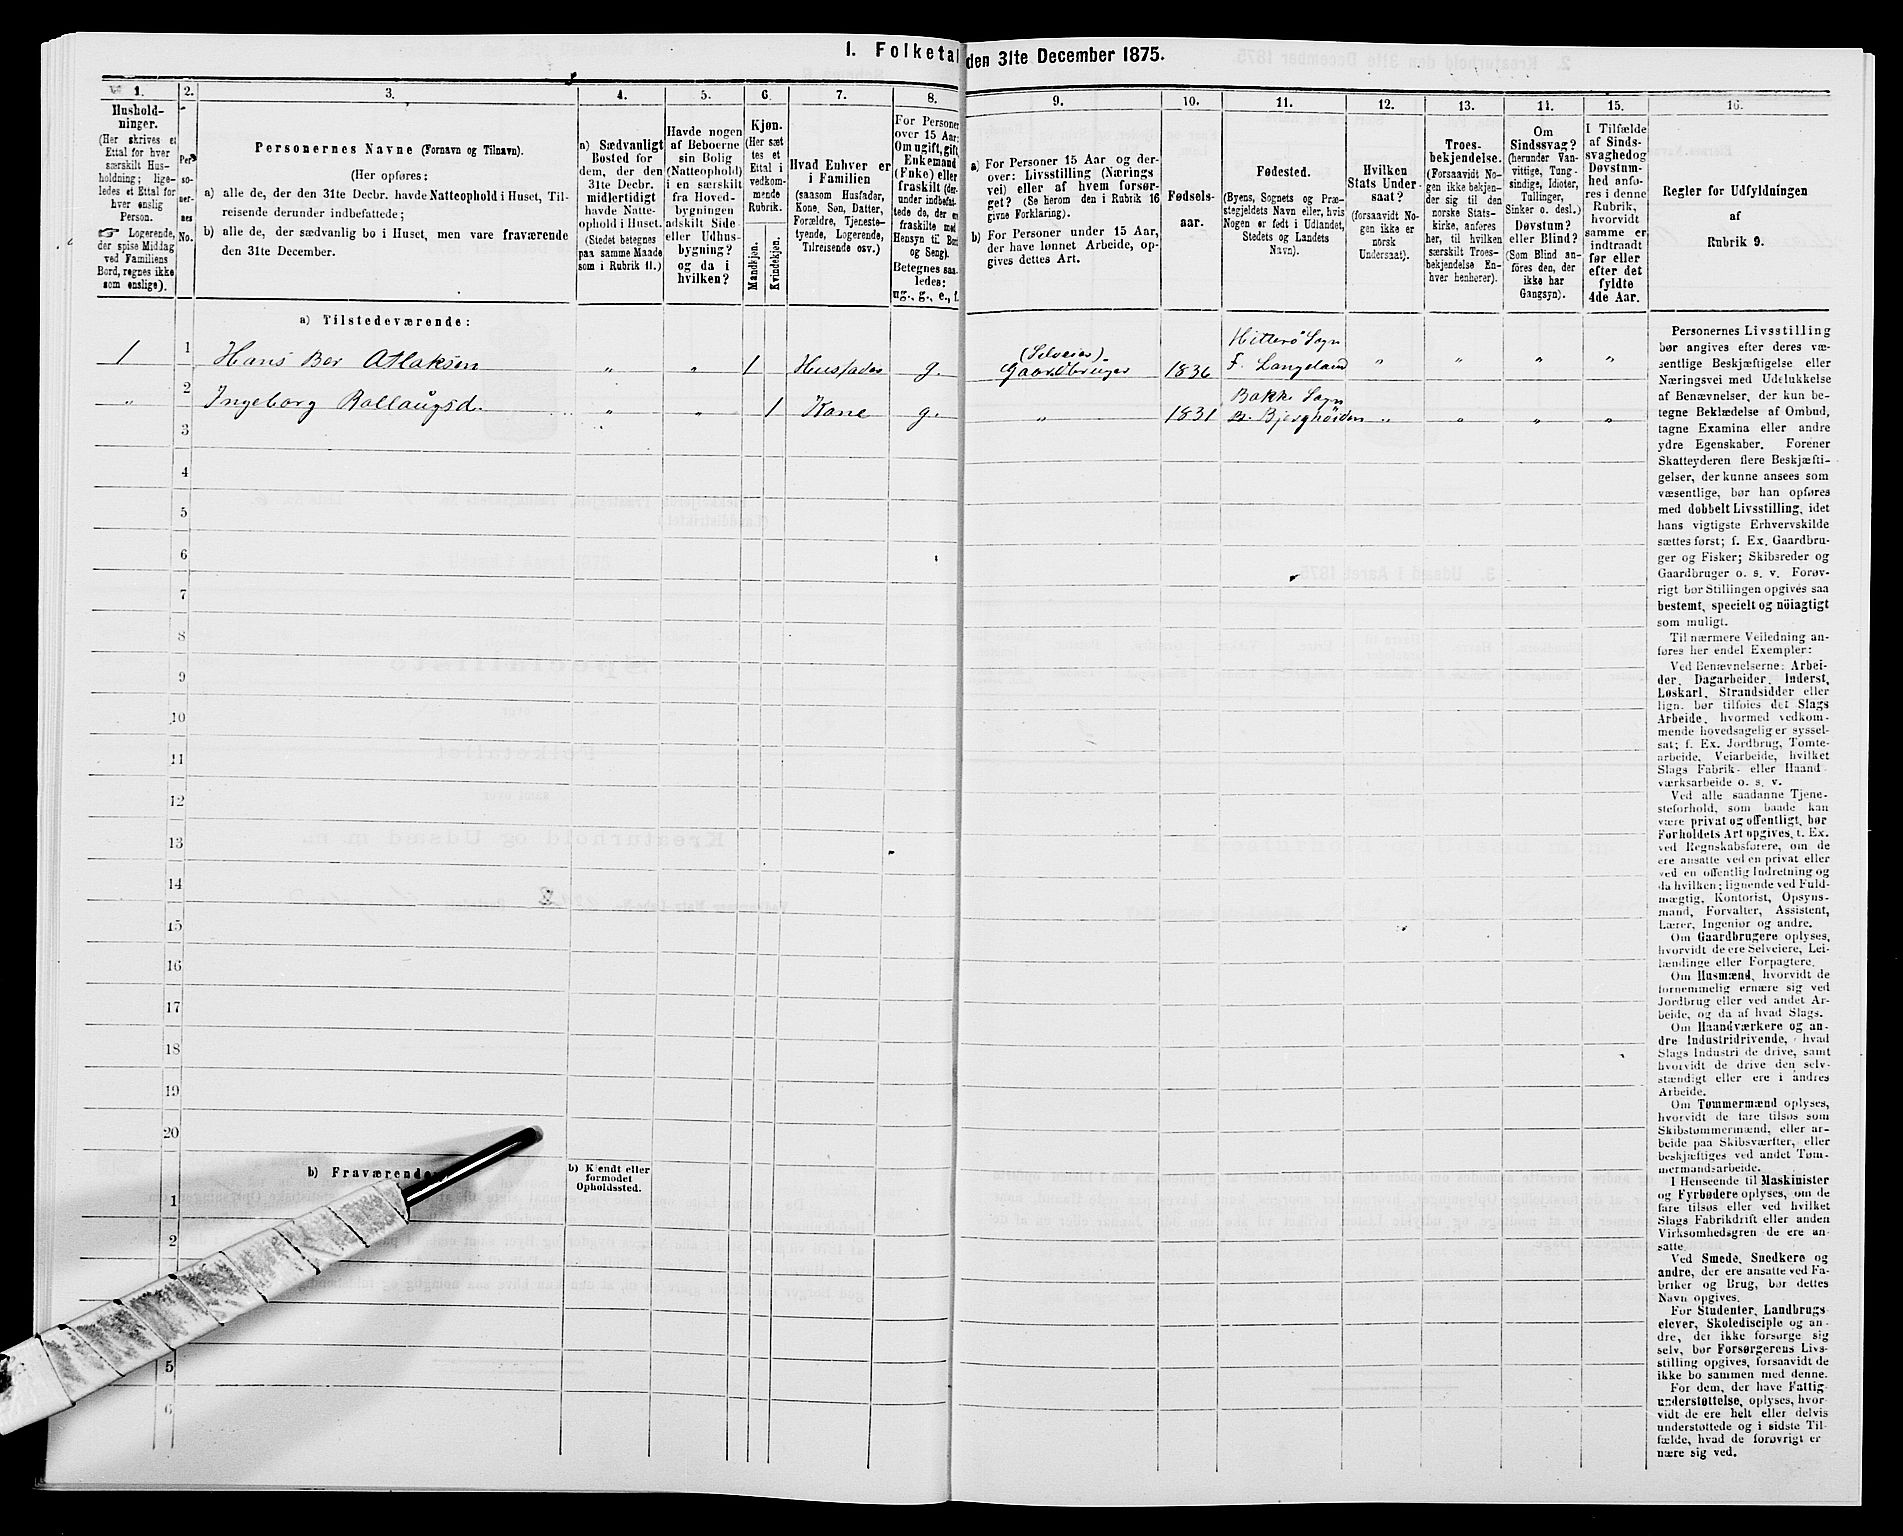 1. Folketal den 31te December 1875.
1.
Hushold-
ninger.
(Her skrives et
Ettal for hver
særskilt Hus-
holdning; lige-
ledes et Ettal for
hver enslig
Person.
☞ Logerende,
der spise Middag
ved Familiens
Bord, regnes ikke
som enslige).
2.
Per-
so-
ner-
nes
No.
3.
Personernes Navne (Fornavn og Tilnavn).
(Her opføres:
a) alle de, der den 31te Decbr. havde Natteophold i Huset, Til-
reisende derunder indbefattede;
b) alle de, der sædvanlig bo i Huset, men vare fraværende
den 31te December.
4.
a) Sædvanligt
Bosted for
dem, der den
31te Decbr.
midlertidigt
havde Natte-
ophold i Huset.
(Stedet betegnes
paa samme Maade
som i Rubrik 11.)
5.
Havde nogen
af Beboerne
sin Bolig
(Natteophold)
i en særskilt
fra Hoved-
bygningen
adskilt Side-
eller Udhus-
bygning?
og da i
hvilken?
6.
Kjøn.
(Her sæt
tes et
Ettal i
vedkom-
mende
Rubrik.
Mandkjøn.
Kvindekjøn.
7.
Hvad Enhver er
i Familien
(saasom Husfader,
Kone, Søn, Datter,
Forældre, Tjeneste-
tyende, Logerende,
Tilreisende osv.)
8.
For Personer
over 15 Aar:
Om ugift, gift,
Enkemand
(Enke) eller
fraskilt (der-
under indbefat-
tede de, der er
fraskilte med
Hensyn til Bord
og Seng).
Betegnes saa-
ledes:
ug., g., e., f.
9.
a) For Personer 15 Aar og der-
over: Livsstilling (Nærings
vei) eller af hvem forsør-
get? (Se herom den i Rubrik 16
givne Forklaring).
b) For Personer under 15 Aar,
der have lønnet Arbeide, op-
gives dettes Art.
10.
Fødsels-
aar.
11.
Fødested.
(Byens, Sognets og Præ-
stegjeldets Navn eller, hvis
Nogen er født i Udlandet,
Stedets og Landets
Navn).
12.
Hvilken
Stats Under-
saat?
(forsaavidt No-
gen ikke er
norsk
Undersaat).
13.
Troes-
bekjendelse.
(Forsaavidt No
gen ikke bekjen-
der sig til den
norske Stats-
kirke, anføres
her, til hvilken
særskilt Troes-
bekjendelse En-
hver henhører).
14.
Om
Sindssvag?
(herunder Van-
vittige, Tung-
sindige, Idioter,
Tullinger,
Sinker o. desl.)
Døvstum?
eller Blind?
(Som Blind an-
føres den, der
ikke har
Gangsyn).
15.
I Tilfælde
af Sinds-
svaghed og
Døvstum-
hed anfø-
res i denne
Rubrik,
hvorvidt
samme er
indtraadt
før eller
efter det
fyldte
4de Aar.
16.
Regler for Udfyldningen
af
Rubrik 9.
a) Tilstedeværende:
1 1 Hans Ber Atlaksen " " 1 Husfader g. (Selveier) Gaardbruger 1836 Hitterø Sogn F. Langeland " " " "
" 2 Ingeborg Rollaugsd. " " 1 Kone g. " 1831 Bakke Sogn Bjerghöiden " " " "
3
4
5
6
7
8
9
10
11
12
13
14
15
16
17
18
19
20
b) Fraværende
b) Kjendt eller
formodet
Opholdssted.
1
2
5
6
Personernes Livsstilling
bør angives efter deres væ-
sentlige Beskjæftigelse eller
Næringsvei med Udelukkelse
af Benævnelser, der kun be-
tegne Beklædelse af Ombud,
tagne Examina eller andre
ydre Egenskaber. Forener
Skatteyderen flere Beskjæfti-
gelser, der kunne ansees som
væsentlige, bør han opføres
med dobbelt Livsstilling, idet
hans vigtigste Erhvervskilde
sættes først; f. Ex. Gaardbru-
ger og Fisker; Skibsreder og
Gaardbruger o. s. v. Forøv-
rigt bør Stillingen opgives saa
bestemt, specielt og nöiagtigt
som muligt.
Til nærmere Veiledning an-
føres her endel Exempler:
Ved Benævnelserne: Arbei-
der, Dagarbeider, Inderst,
Løskarl, Strandsidder eller
lign. bør tilføies det Slags
Arbeide, hvormed vedkom-
mende hovedsagelig er syssel-
sat; f. Ex. Jordbrug, Tomte-
arbeide, Veiarbeide, hvilket
Slags Fabrik- eller Haand
værksarbeide o. s. v.
Ved alle saadanne Tjene-
steforhold, som baade kan
være privat og offentligt, bør
Forholdets Art opgives, t. Ex.
ved Regnskabsførere, om de
ere ansatte ved en privat eller
ved en offentlig Indretning og
da hvilken; lignende ved Fuld-
mægtig, Kontorist, Opsyns-
mand, Forvalter, Assistent,
Lærer, Ingeniør og andre.
Om Gaardbrugere oplyses,
hvorvidt de ere Selveiere, Lei-
lændinge eller Forpagtere.
Om Husmænd, hvorvidt de
fornemmelig ernære sig ved
Jordbrug eller ved andet Ar-
beide, og da af hvad Slags.
Om Haandværkere og an-
dre Industridrivende, hvad
Slags Industri de drive, samt
hvorvidt de drive den selv-
stændigt eller ere i andres
Arbeide.
Om Tømmermænd oplyses,
hvorvidt de fare tilsøs som
Skibstømmermænd, eller ar-
beide paa Skibsværfter, eller
beskjæftiges ved andet Tøm-
mermandsarbeide.
I Henseende til Maskinister
og Fyrbødere oplyses, om de
fare tilsøs eller ved hvilket
Slags Fabrikdrift eller anden
Virksomhedsgren de ere an-
satte.
Ved Smede, Snedkere og
andre, der ere ansatte ved Fa-
briker og Brug, bør dettes
Navn opgives.
For Studenter, Landbrugs-
elever, Skoledisciple og an-
dre, der ikke forsørge sig
selv, bør Forsørgerens Livs-
stilling opgives, forsaavidt de
ikke bo sammen med denne.
For dem, der have Fattig-
understøttelse, oplyses, hvor-
vidt de ere helt eller delvis
understøttede og i sidste Til-
fælde, hvad de forøvrigt er-
nære sig ved.